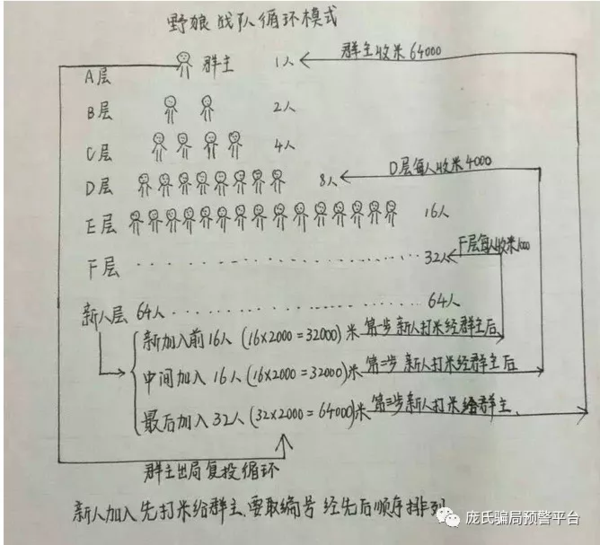 野狼战队循环模式
群主收米64000
A层 群主 1人
B层 2人
C层 4人
D层每人收米4000
D层 8人
E层 16人
F层每人收米1000
F层 32人
新人层 64人 64人
新加入前16人 (16×2000=32000)米 第一步 新人打米给群主后
中间加入 16人 (16×2000=32000)米 第二步 新人打米给群主后
最后加入 32人 (32×2000=64000)米 第三步新人打米给群主
群主出局复投循环
新人加入先打米给群主、要取编号 经先后顺序排列
庞氏骗局预警平台